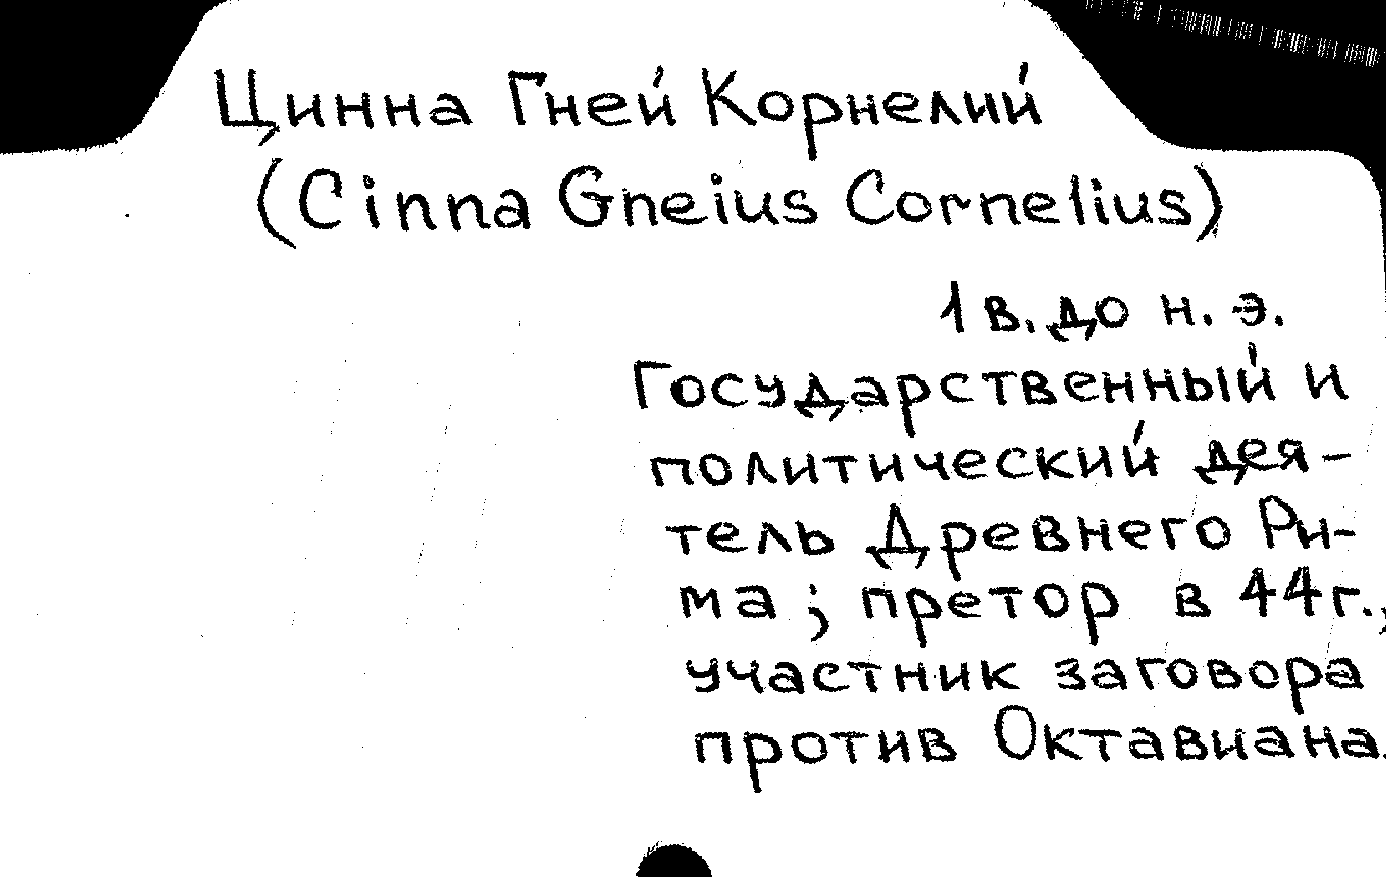 Цинна Гней Корнелий
(Cinna Gneius Cornelius)
1 в. до н. э.
Государственный и
политический дея-
тель Древнего Ри-
ма; претор в 44 г.,
участник заговора
против Октавиана.